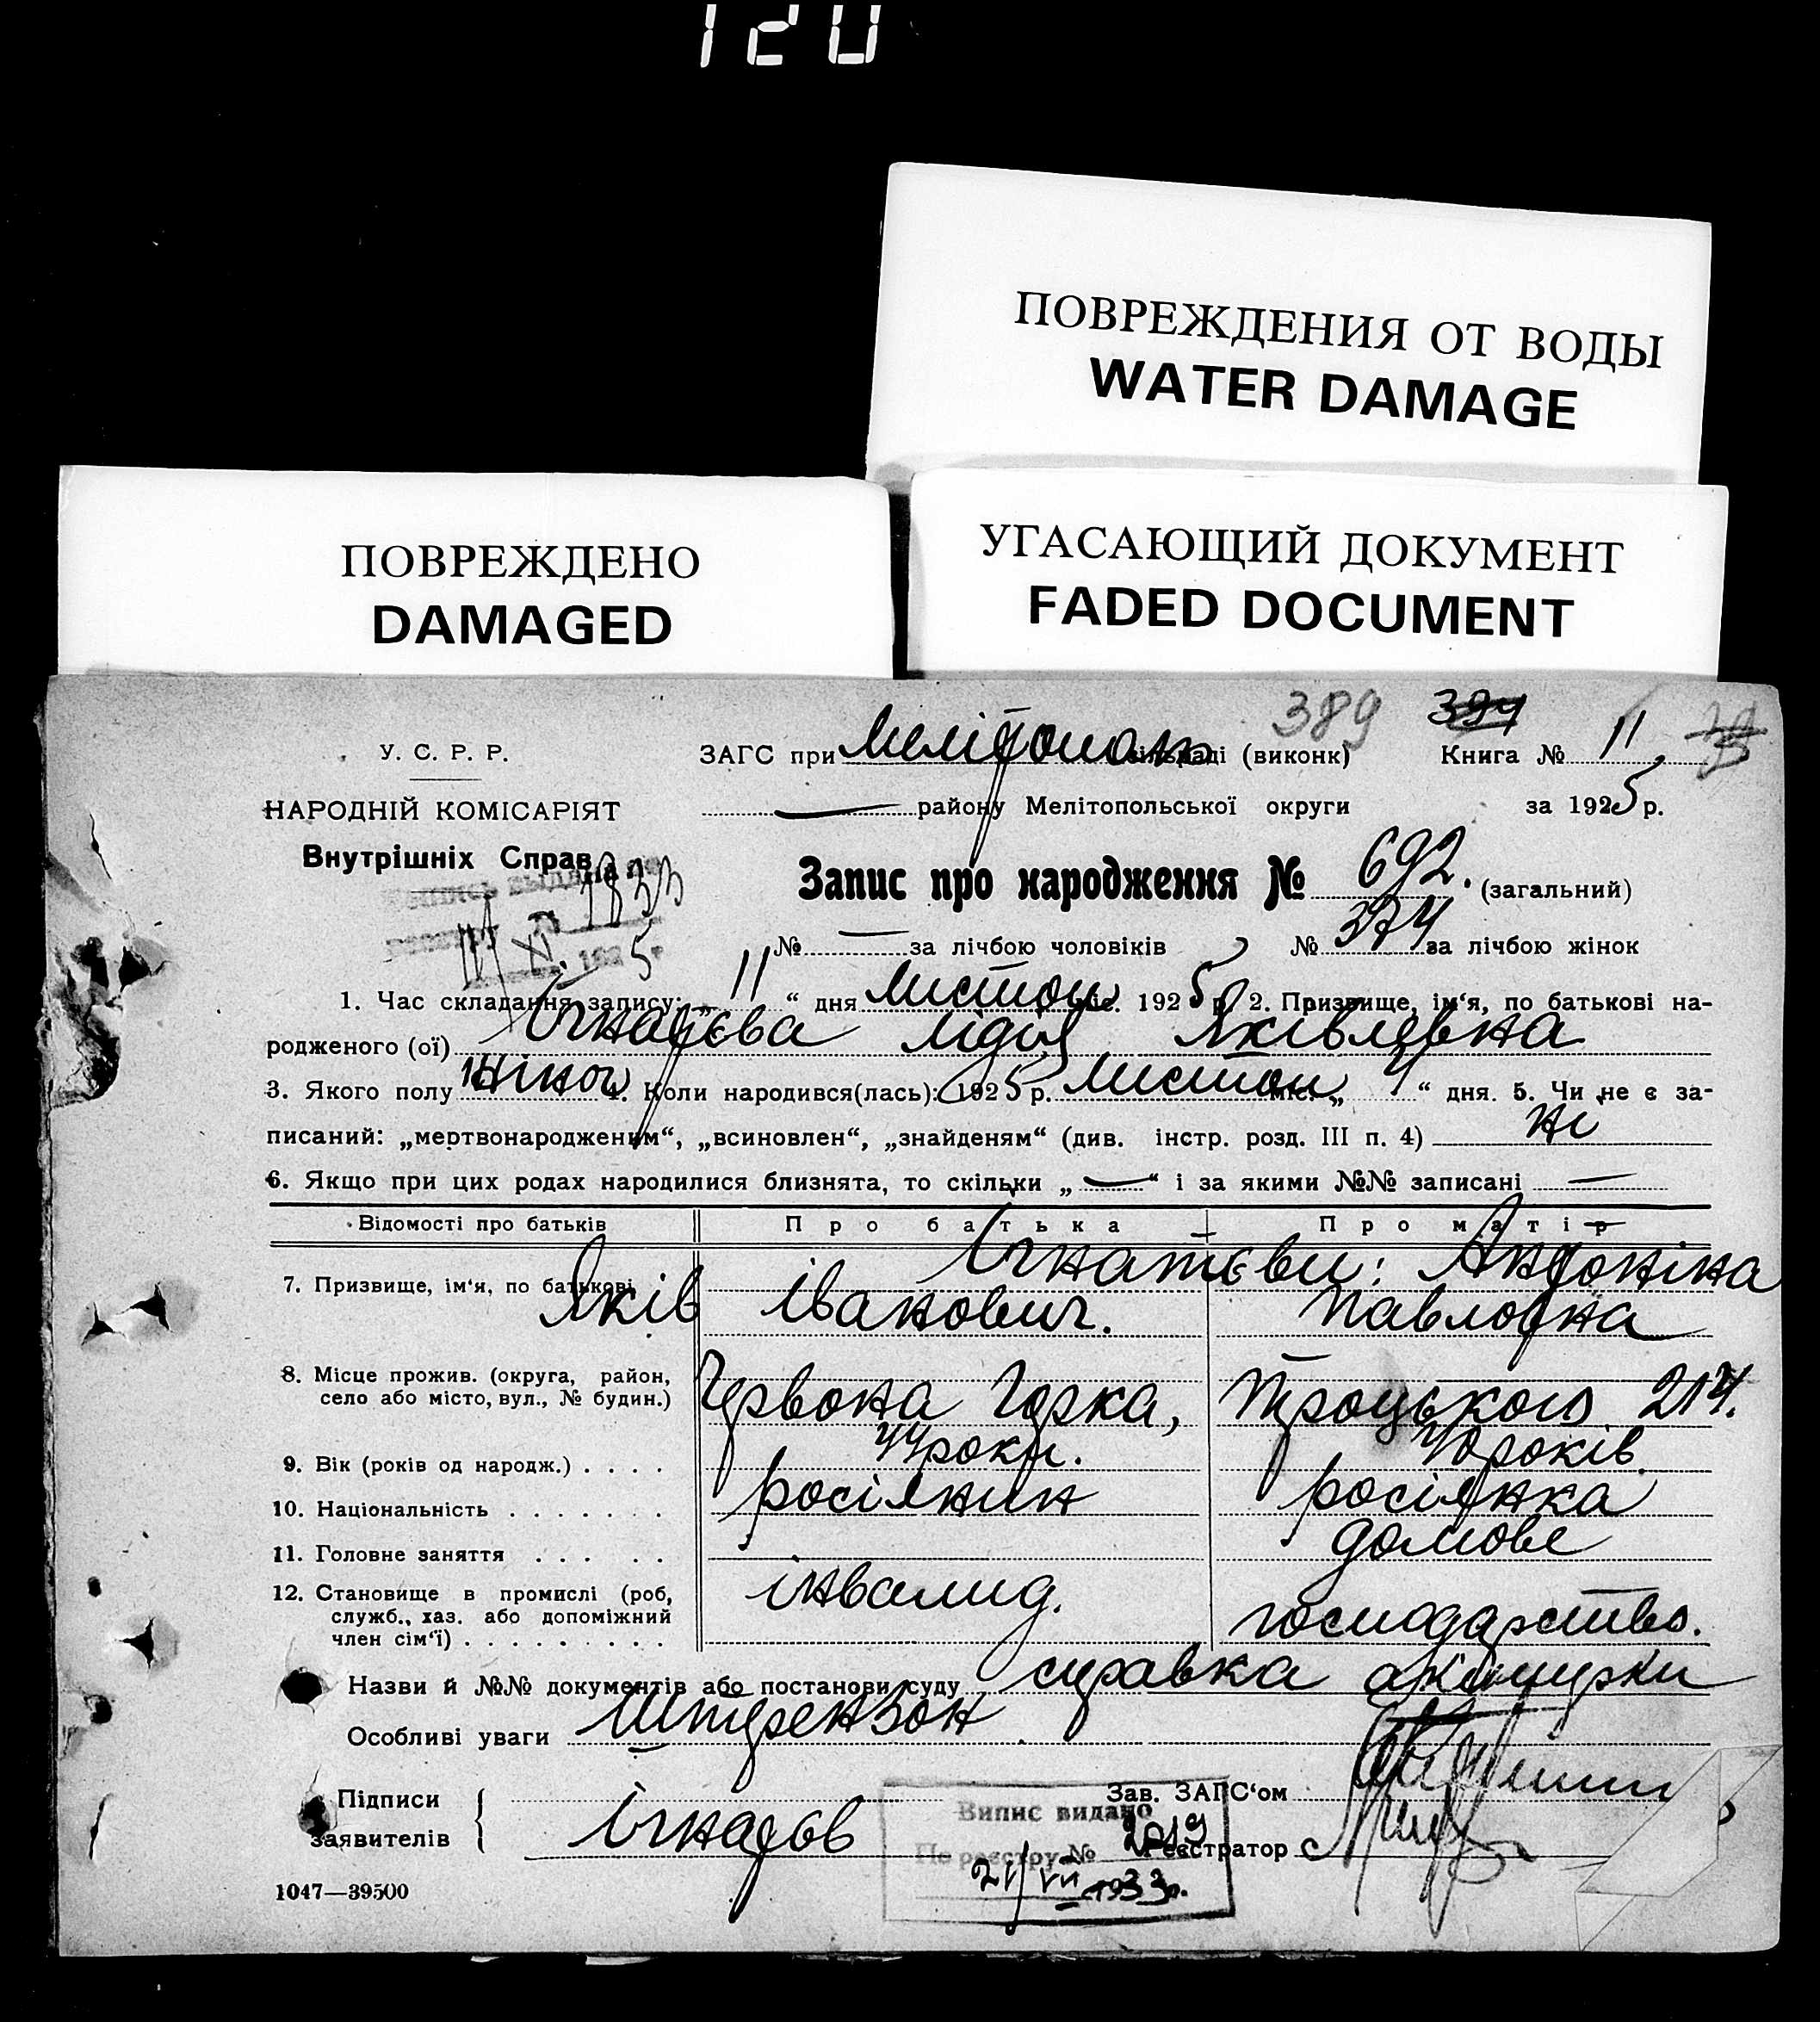 120
ПОВРЕЖДЕНИЯ ОТ ВОДЫ
WATER DAMAGE
ПОВРЕЖДЕНО
DAMAGED
УГАСАЮЩИЙ ДОКУМЕНТ
FADED DOCUMENT
389 394
У. С. Р. Р. ЗАГС при Мелітопол (виконк) Книга № 11
району Мелітопольської округи за 1925 р.
НАРОДНІЙ КОМІСАРІЯТ
Внутрішніх Справ
1833
Запис про народження № 692. (загальний)
№ — за лічбою чоловіків № 374 за лічбою жінок
11 XI. 1925
1. Час складання запису: „ 11 “ дня Листоп міс. 1925 р. 2. Призвище, ім‘я, по батькові на-
родженого (ої) Ігнатєва Лідія Яківлевна
3. Якого полу жіноч 4. Коли народився(лась): 1925 р. Листоп міс. „ 4 “ дня. 5. Чи не є за-
писаний: „мертвонародженим“, „всиновлен“, „знайденям“ (див. інстр. розд. III п. 4) не
6. Якщо при цих родах народилися близнята, то скільки „ — “ і за якими №№ записані —
Відомості про батьків Про батька Про матір
7. Призвище, ім‘я, по батькові Ігнатєви: Антоніна
Яків Іванович. Павловна
8. Місце прожив. (округа, район,
село або місто, вул., № будин.) Червона Горка, Троцького 214.
9. Вік (років од народж.) . . . . 44 роки. 40 років.
10. Національність . . . . . . . росіянин росіянка
11. Головне заняття . . . . . домове
12. Становище в промислі (роб, інвалид. господарство.
служб., хаз. або допоміжний
член сім‘ї) . . . . . . . . .
Назви й №№ документів або постанови суду справка акушерки
Особливі уваги Штерензон
Підписи
заявителів Ігнатов
Зав. ЗАГС‘ом
Реєстратор
Випис видано
По реєстру № 2019
21/VII 1933р.
1047—39500